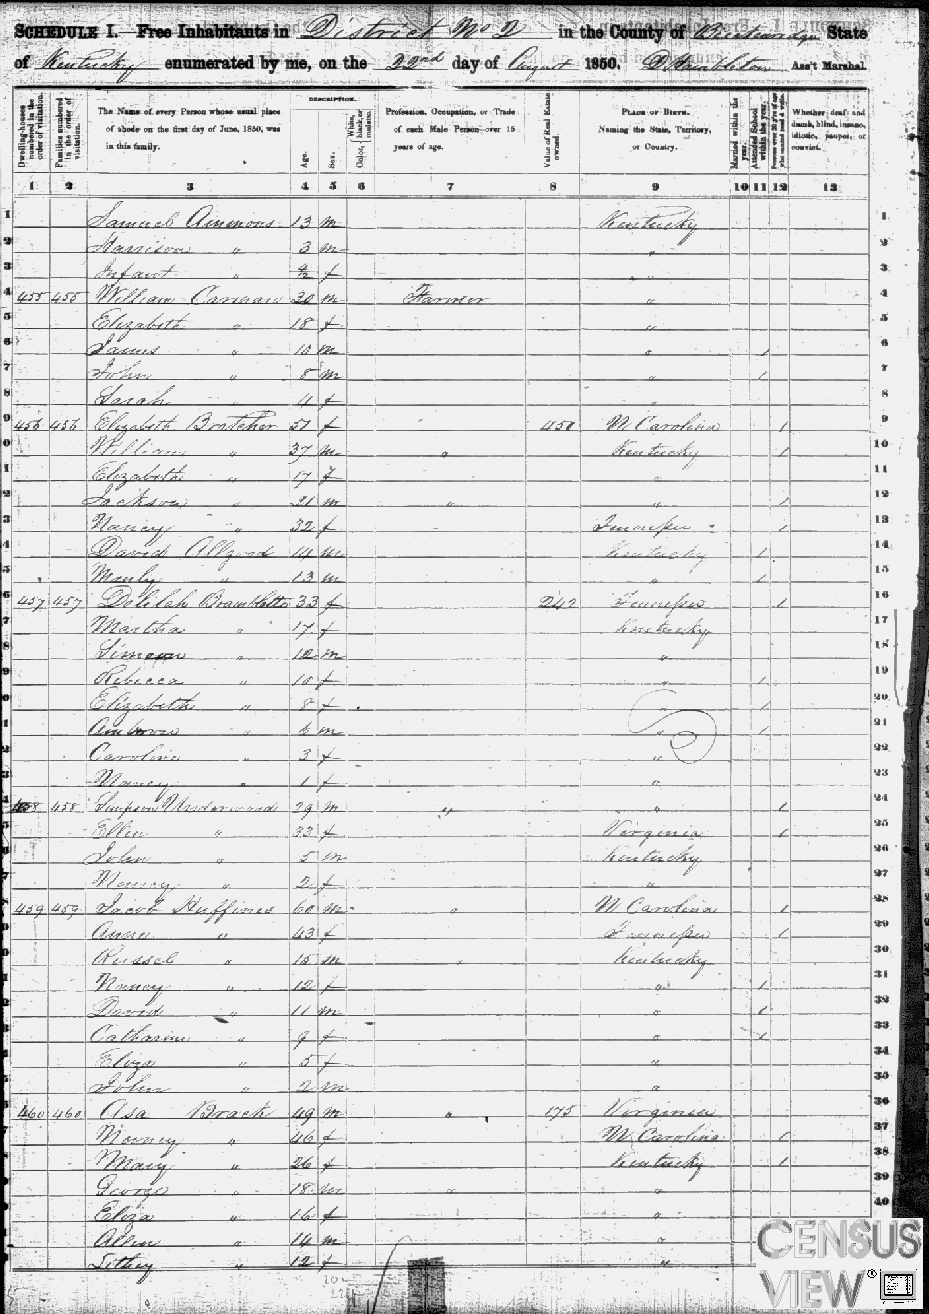 SCHEDULE I. Free Inhabitants in District No 2 in the County of State
of Kentucky enumerated by me, on the 22nd day of August 1850. Ass't Marshal.
Dwelling-houses numbered in the order of visitation.
Families numbered in the order of visitation.
The Name of every Person whose usual place of abode on the first day of June, 1850, was in this family.
DESCRIPTION.
Age.
Sex.
Color, White, black, or mulatto.
Profession, Occupation, or Trade of each Male Person over 15 years of age.
Value of Real Estate owned.
PLACE OF BIRTH. Naming the State, Territory, or Country.
Married within the year.
Attended School within the year.
Whether deaf and dumb, blind, insane, idiotic, pauper, or convict.
1 2 3 4 5 6 7 8 9 10 11 12 13
1 Samuel Ammons 13 m Kentucky 1
2 Harrison " 3 m " 2
3 Infant " f " 3
4 455 455 William 30 m Farmer " 4
5 Elizabeth " 18 f " 5
6 James " 10 m " 1 6
7 John " 8 m " 1 7
8 Sarah " 4 f " 8
9 456 456 Elizabeth Bratcher 57 f 450 N. Carolina 1 9
10 William " 37 m " Kentucky 1 10
11 Elizabeth " 17 f " 11
12 Jackson " 21 m " " 1 12
13 Nancy " 32 f Tennessee 1 13
14 David 14 m Kentucky 1 14
15 " 13 m " 1 15
16 457 457 Delilah Bramblette 33 f 242 Tennessee 1 16
17 Martha " 17 f Kentucky 17
18 Simeon " 12 m " 18
19 Rebecca " 10 f " 1 19
20 Elizabeth " 8 f " 1 20
21 Ambrose " 6 m " 1 21
22 Caroline " 3 f " 22
23 Nancy " 1 f " 23
24 458 458 Simpson Underwood 29 m " " 1 24
25 Ellen " 33 f Virginia 1 25
26 John " 5 m Kentucky 26
27 Nancy " 2 f " 27
28 459 459 Jacob Huffines 60 m " N. Carolina 1 28
29 Anne " 43 f Tennessee 1 29
30 Russel " 15 m " Kentucky 30
31 Nancy " 12 f " 1 31
32 David " 11 m " 1 32
33 Catharine " 9 f " 1 33
34 Eliza " 5 f " 34
35 John " 2 m " 35
36 460 460 Asa Brack 49 m " 175 Virginia 36
37 " 46 f N. Carolina 1 37
38 Mary " 26 f Kentucky 1 38
39 George " 18 m " " 39
40 Eliza " 16 f " 40
Allen " 14 m "
" 12 f "
CENSUS
VIEW®